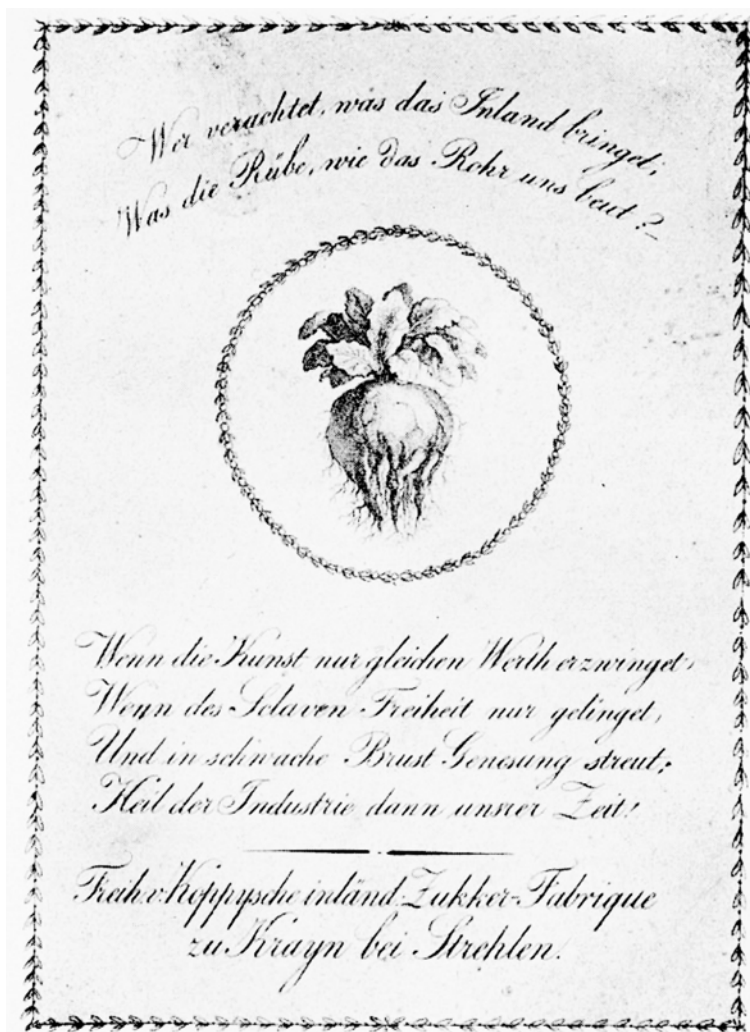 Wer verachtet, was das Inland bringet;
Was die Rübe, wie das Rohr uns beut?
Wenn die Kunst nur gleichen Werth erzwinget,
Wenn des Sclaven Freiheit nur gelinget,
Und in schwache Brust Genesung streut;
Heil der Industrie dann unsrer Zeit!
Freih. v. Koppysche inländ. Zukker-Fabrique
zu Krayn bei Strehlen.